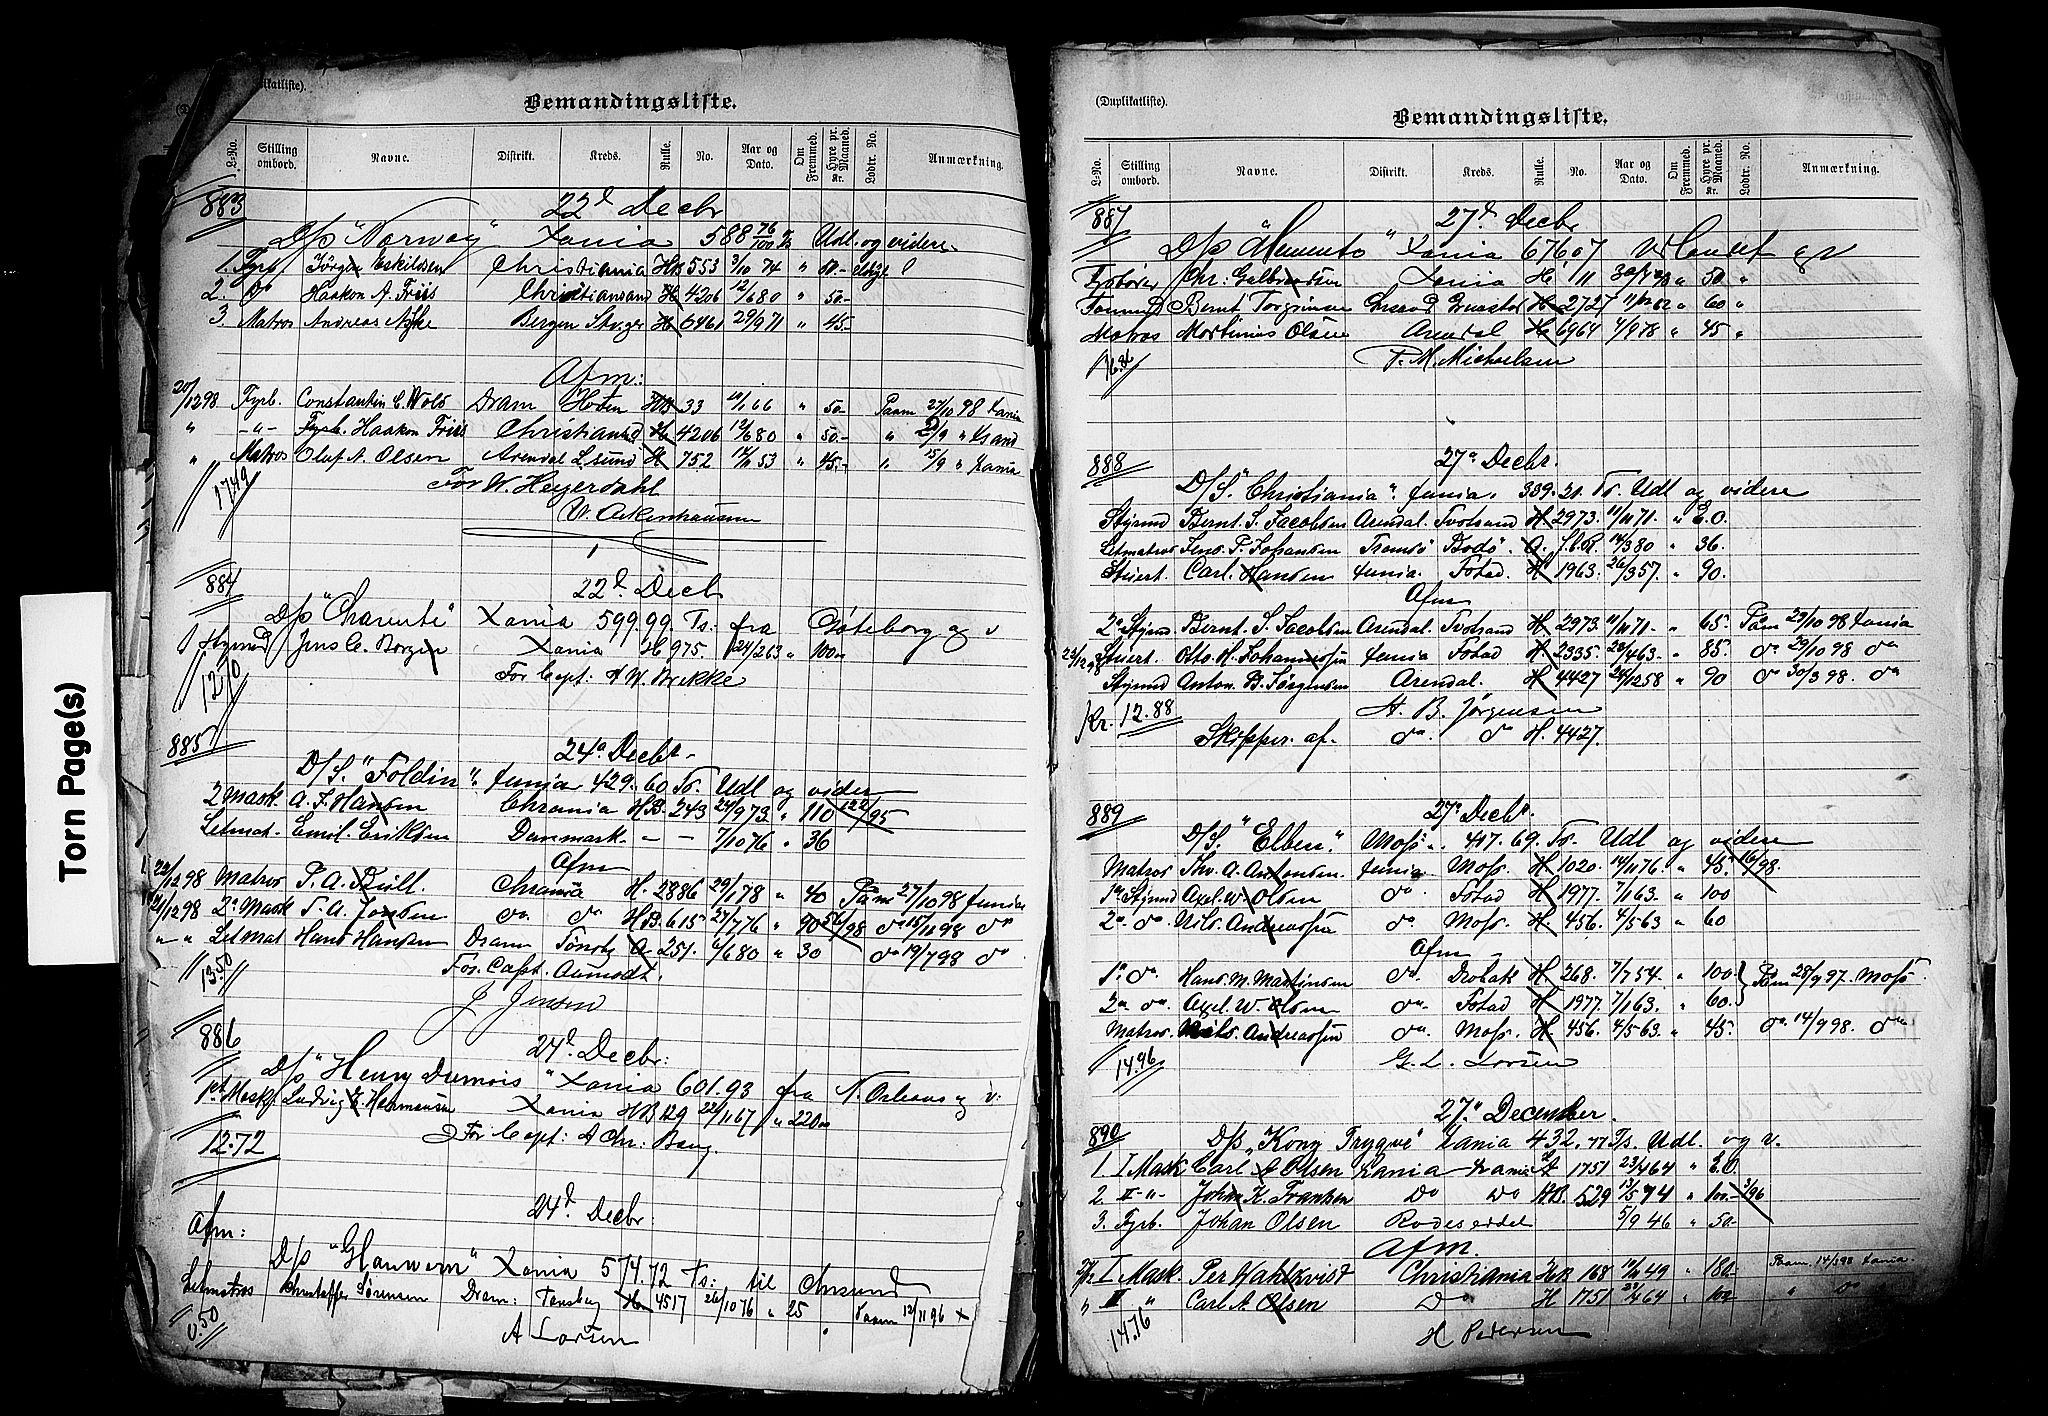 Torn Page(s)
katliste).
Bemandingsliste.
L-No. Stilling ombord. Navne. Distrikt. Kreds. Rulle. No. Aar og Dato. Om Fremmed. Hyre pr. Maaned. Kr. Lodtr. No. Anmærkning.
883 22d Decbr
D/s "Norway" Xania 588 76/100 Ts Udl. og videre
1. Fyrb. Jörgen Eskildsen Christiania HB 553 3/10 74 " 50.-
2. do Haakon A. Friis Christiansand H 4206 12/6 80 " 50.-
3. Matros Andreas Bergen Stvger H 6461 29/9 71 " 45.-
Afm:
20/12 98 Fyrb. Constantin C. Wold Dram Holen HB 33 66 " 50.- Paam 27/10 98 Xania
" -"- Fyrb. Haakon Friis Christiansd H 4206 12/6 80 " 50.- " 2/9 " Xsand
" Matros Oluf N. Olsen Arendal L.sund H 752 53 " 45.- " 15/9 " Xania
1749 For W. Heyerdahl
W. Ackenhausen
884 22d Decb
D/s "Charente" Xania 599.99 Ts. fra Göteborg og v
1 Stymd Jens C. Borgen Xania H 975. 24/2 63 " 100.-
1270 For Capt: A W. Brekke
885 24a Decbr.
D/S. "Foldin". Xania 429.60 To. Udl og videre
2 Mask. A. F. Hansen Chrania HB. 243 24/9 73 " 110 122/95
Letmat. Emil Eriksen Danmark - - 7/10 76 " 36
Afm
22/12 98 Matros P. A. Bull. Chrania H. 2886 29/1 78 " 40 Paam 27/10 98 Xania
21/12 98 2a Mask T. A. Jonsen do do HB. 615 24/7 76 " 90 56/98 do 15/11 98 do
" " Letmat Hans Hansen Dram Tönsbg A 251. 6/6 80 " 30 do 19/7 98 do
13.50 For Capt. Aamodt.
J Jensen
886 24d. Decbr:
D/s "Henry Dumois" Xania 601.93 fra N. Orleans og v:
1ste Mask Ludvig E. Hermansen Xania HB 129 22/11 67 " 220.-
12.72 For Capt: A Chr: Bang.
24d. Decbr:
Afm:
D/s "Hauwern" Xania 574.72 Ts: til Chrsund
Letmatros Christoffer Sörensen Dram: Tønsbug H 4517 26/10 76 " 25 Paam 12/11 96 X
0.50 A Larsen
(Duplikatliste).
Bemandingsliste.
L-No. Stilling ombord. Navne. Distrikt. Kreds. Rulle. No. Aar og Dato. Om Fremmed. Hyre pr. Maaned. Kr. Lodtr. No. Anmærkning.
887 27d. Decbr
D/s "Memento" Xania 676.07 v
Fyrböder Chr: Gulbrandsen Xania H 11 " 50 "
Tømmd Bernt Torgrimsen Grmstad H 2727 11/12 62 " 60 "
Matros Martinus Olsen Arendal H 6964 4/9 78 " 45 "
16.86 P. M. Michaelsen
888 27a Decbr.
D/S. "Christiania". Xania. 339.21. To. Udl og videre
Stÿrmd Bernt. S. Jacobsen Arendal. Tvetsand H 2973. 11/11 71. "
Letmatros Jens. P. Johansen Tromsö Bodö. A. 14/3 80 " 36.
Stuert. Carl. Hansen Xania. Fstad. H 1963. 26/3 57. " 90.
Afm
2a Stÿrmd Bernt. S. Jacobsen Arendal. Tvetsand H 2973. 11/11 71. " 65. Paam 29/10 98 Xania
22/12 98 Stuert. Otto. H. Johannessen Xania Fstad H 2335. 20/4 63. " 85. do 29/10 98 do
Stÿrmd Anton. B. Jörgensen Arendal. H 4427 24/12 58 " 90 do 30/3 98. do
Kr. 12.88 A. B. Jörgensen
Skipper. af. do. do H. 4427.
889 27a Decbr.
D/S. "Elben". Moss. 417.69. To. Udl og videre
Matros Thv. A. Antonsen. Xania. Moss. H 1020. 14/11 76. " 45. 16/98.
1ste Stÿrmd Axel. W. Olsen do Fstad H 1977. 7/1 63. " 100
2a do. Nils. Andreassen do. Moss. H 456. 4/5 63. " 60
Afm
1ste do. Hans. M. Martinsen do. Drøbak H. 268. 7/7 54. " 100. Paam 28/9 97. Moss.
2a do Axel. W. Olsen do Fstad H 1977. 7/1 63. " 60.
Matros. Nils. Andreassen do. Moss. H. 456. 4/5 63. " 45. do. 14/9 98. do
14.96 G. L. Larsen
27. December.
890 D/s "Kong Trygve" Xania 432.77 Ts. Udl. og v.
1. I Mask Carl A Olsen Xania Xania H 1751 23/4 64 "
2. II -"- Johan K. Frantzen Do Do HB. 529 13/5 74 " 100.- 3/96
3. Fyrb. Johan Olsen Rodeseddel 5/9 46 " 50.-
Afm.
I Mask. Per Wahlkvist Christiania HB 168 14/11 49 " 180.- Paam. 14/3 98 Xania
" II " Carl A. Olsen Do H 1751 23/4 64 " 100 " Do
14.76 H Pedersen